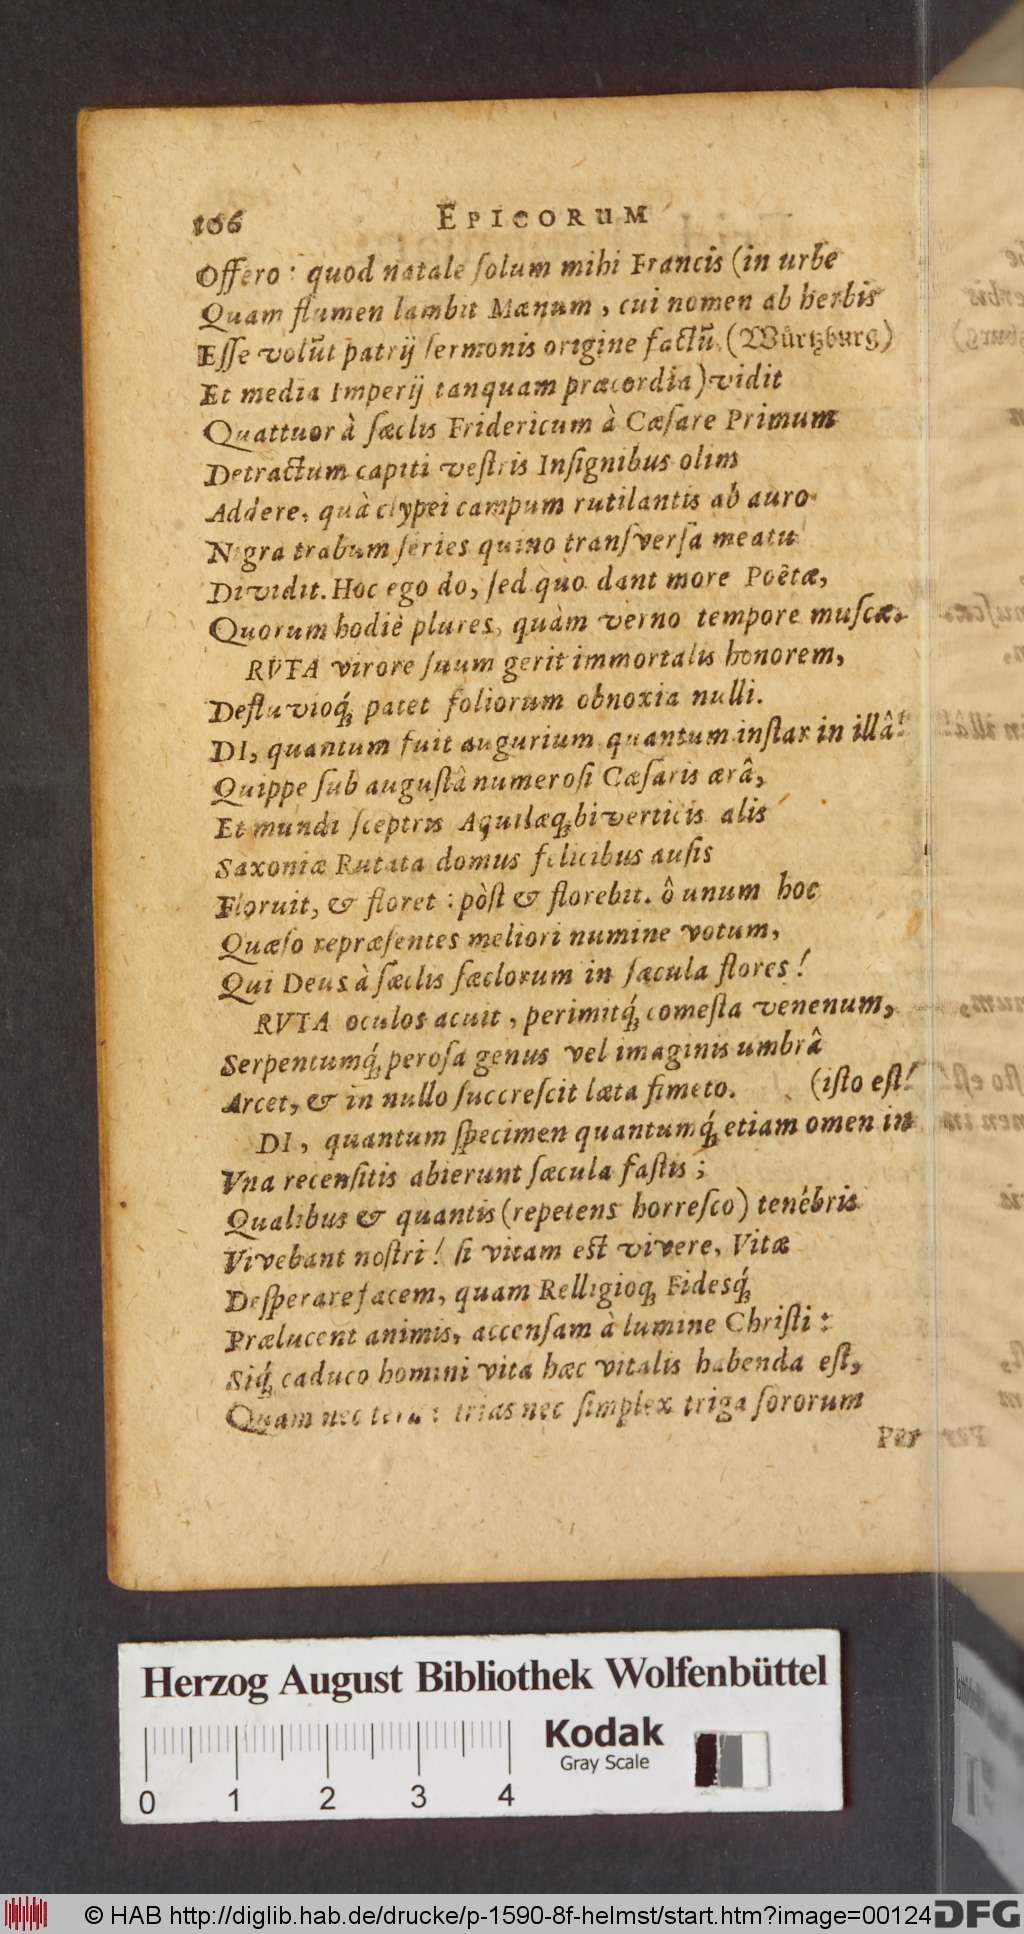 106 EPICORUM
Offero: quod natale ſolum mihi Francis (in urbe
Quam flumen lambit Mænum, cui nomen ab herbis
Eſſe volūt patrij ſermonis origine factū (Würtzburg)
Et media Imperij tanquam præcordia) vidit
Quattuor à ſæclis Fridericum à Cæſare Primum
Detractum capiti veſtris Inſignibus olim
Addere, quà clypei campum rutilantis ab auro
Nigra trabum ſeries quino transverſa meatu
Dividit. Hoc ego do, ſed quo dant more Poêtæ,
Quorum hodiè plures, quàm verno tempore muſcæ.
RVTA virore ſuum gerit immortalis honorem,
Defluvioq́; patet foliorum obnoxia nulli.
DI, quantum fuit augurium quantum inſtar in illâ!
Quippe ſub auguſtâ numeroſi Cæſaris ærâ,
Et mundi ſceptris Aquilæq; biverticis alis
Saxoniæ Rutata domus felicibus auſis
Floruit, & floret: pòſt & florebit. ô unum hoc
Quæſo repræſentes meliori numine votum,
Qui Deus à ſæclis ſæclorum in ſæcula flores!
RVTA oculos acuit, perimitq́; comeſta venenum,
Serpentumq́; peroſa genus vel imaginis umbrâ
Arcet, & in nullo ſuccreſcit læta fimeto. (iſto eſt!
DI, quantum ſpecimen quantumq́; etiam omen in
Vna recenſitis abierunt ſæcula faſtis;
Qualibus & quantis (repetens horreſco) tenébris
Vivebant noſtri! ſi vitam eſt vivere, Vitæ
Deſperare facem, quam Relligioq; Fidesq́;
Prælucent animis, accenſam à lumine Chriſti:
Siq́; caduco homini vita hæc vitalis habenda eſt,
Quam nec trias nec ſimplex triga ſororum
Per
Herzog August Bibliothek Wolfenbüttel
Kodak
Gray Scale
0 1 2 3 4
© HAB http://diglib.hab.de/drucke/p-1590-8f-helmst/start.htm?image=00124
DFG